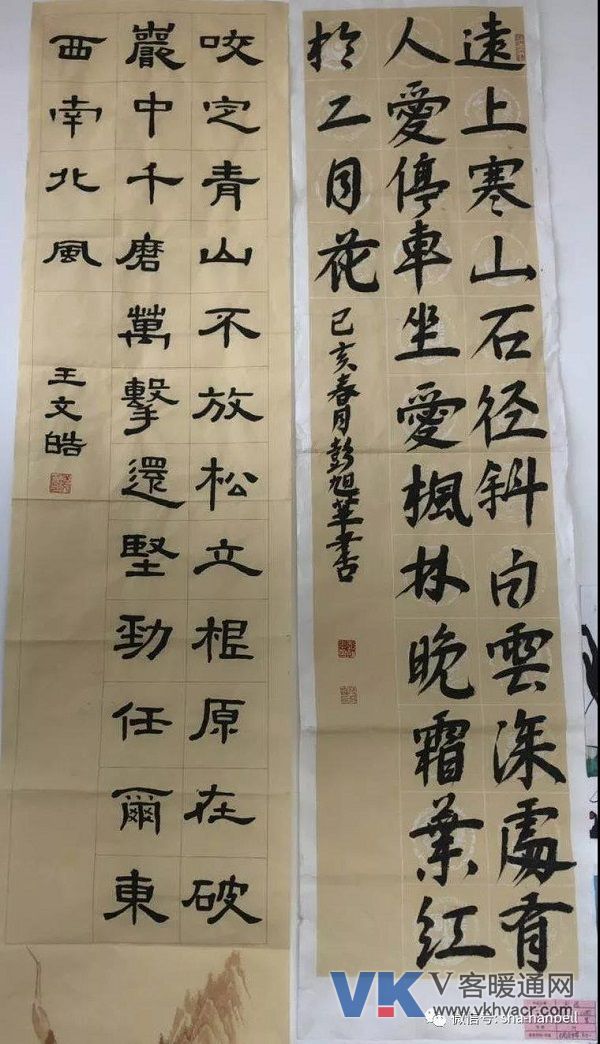 遠上寒山石径斜白雲深處有
人愛停車坐愛楓林晚霜葉紅
於二月花
己亥春月彭旭華書
咬定青山不放松立根原在破
巖中千磨萬擊還堅勁任爾東
西南北風
王文皓
VK V客暖通网
www.vkhvacr.com
微信号: sha-hanbell